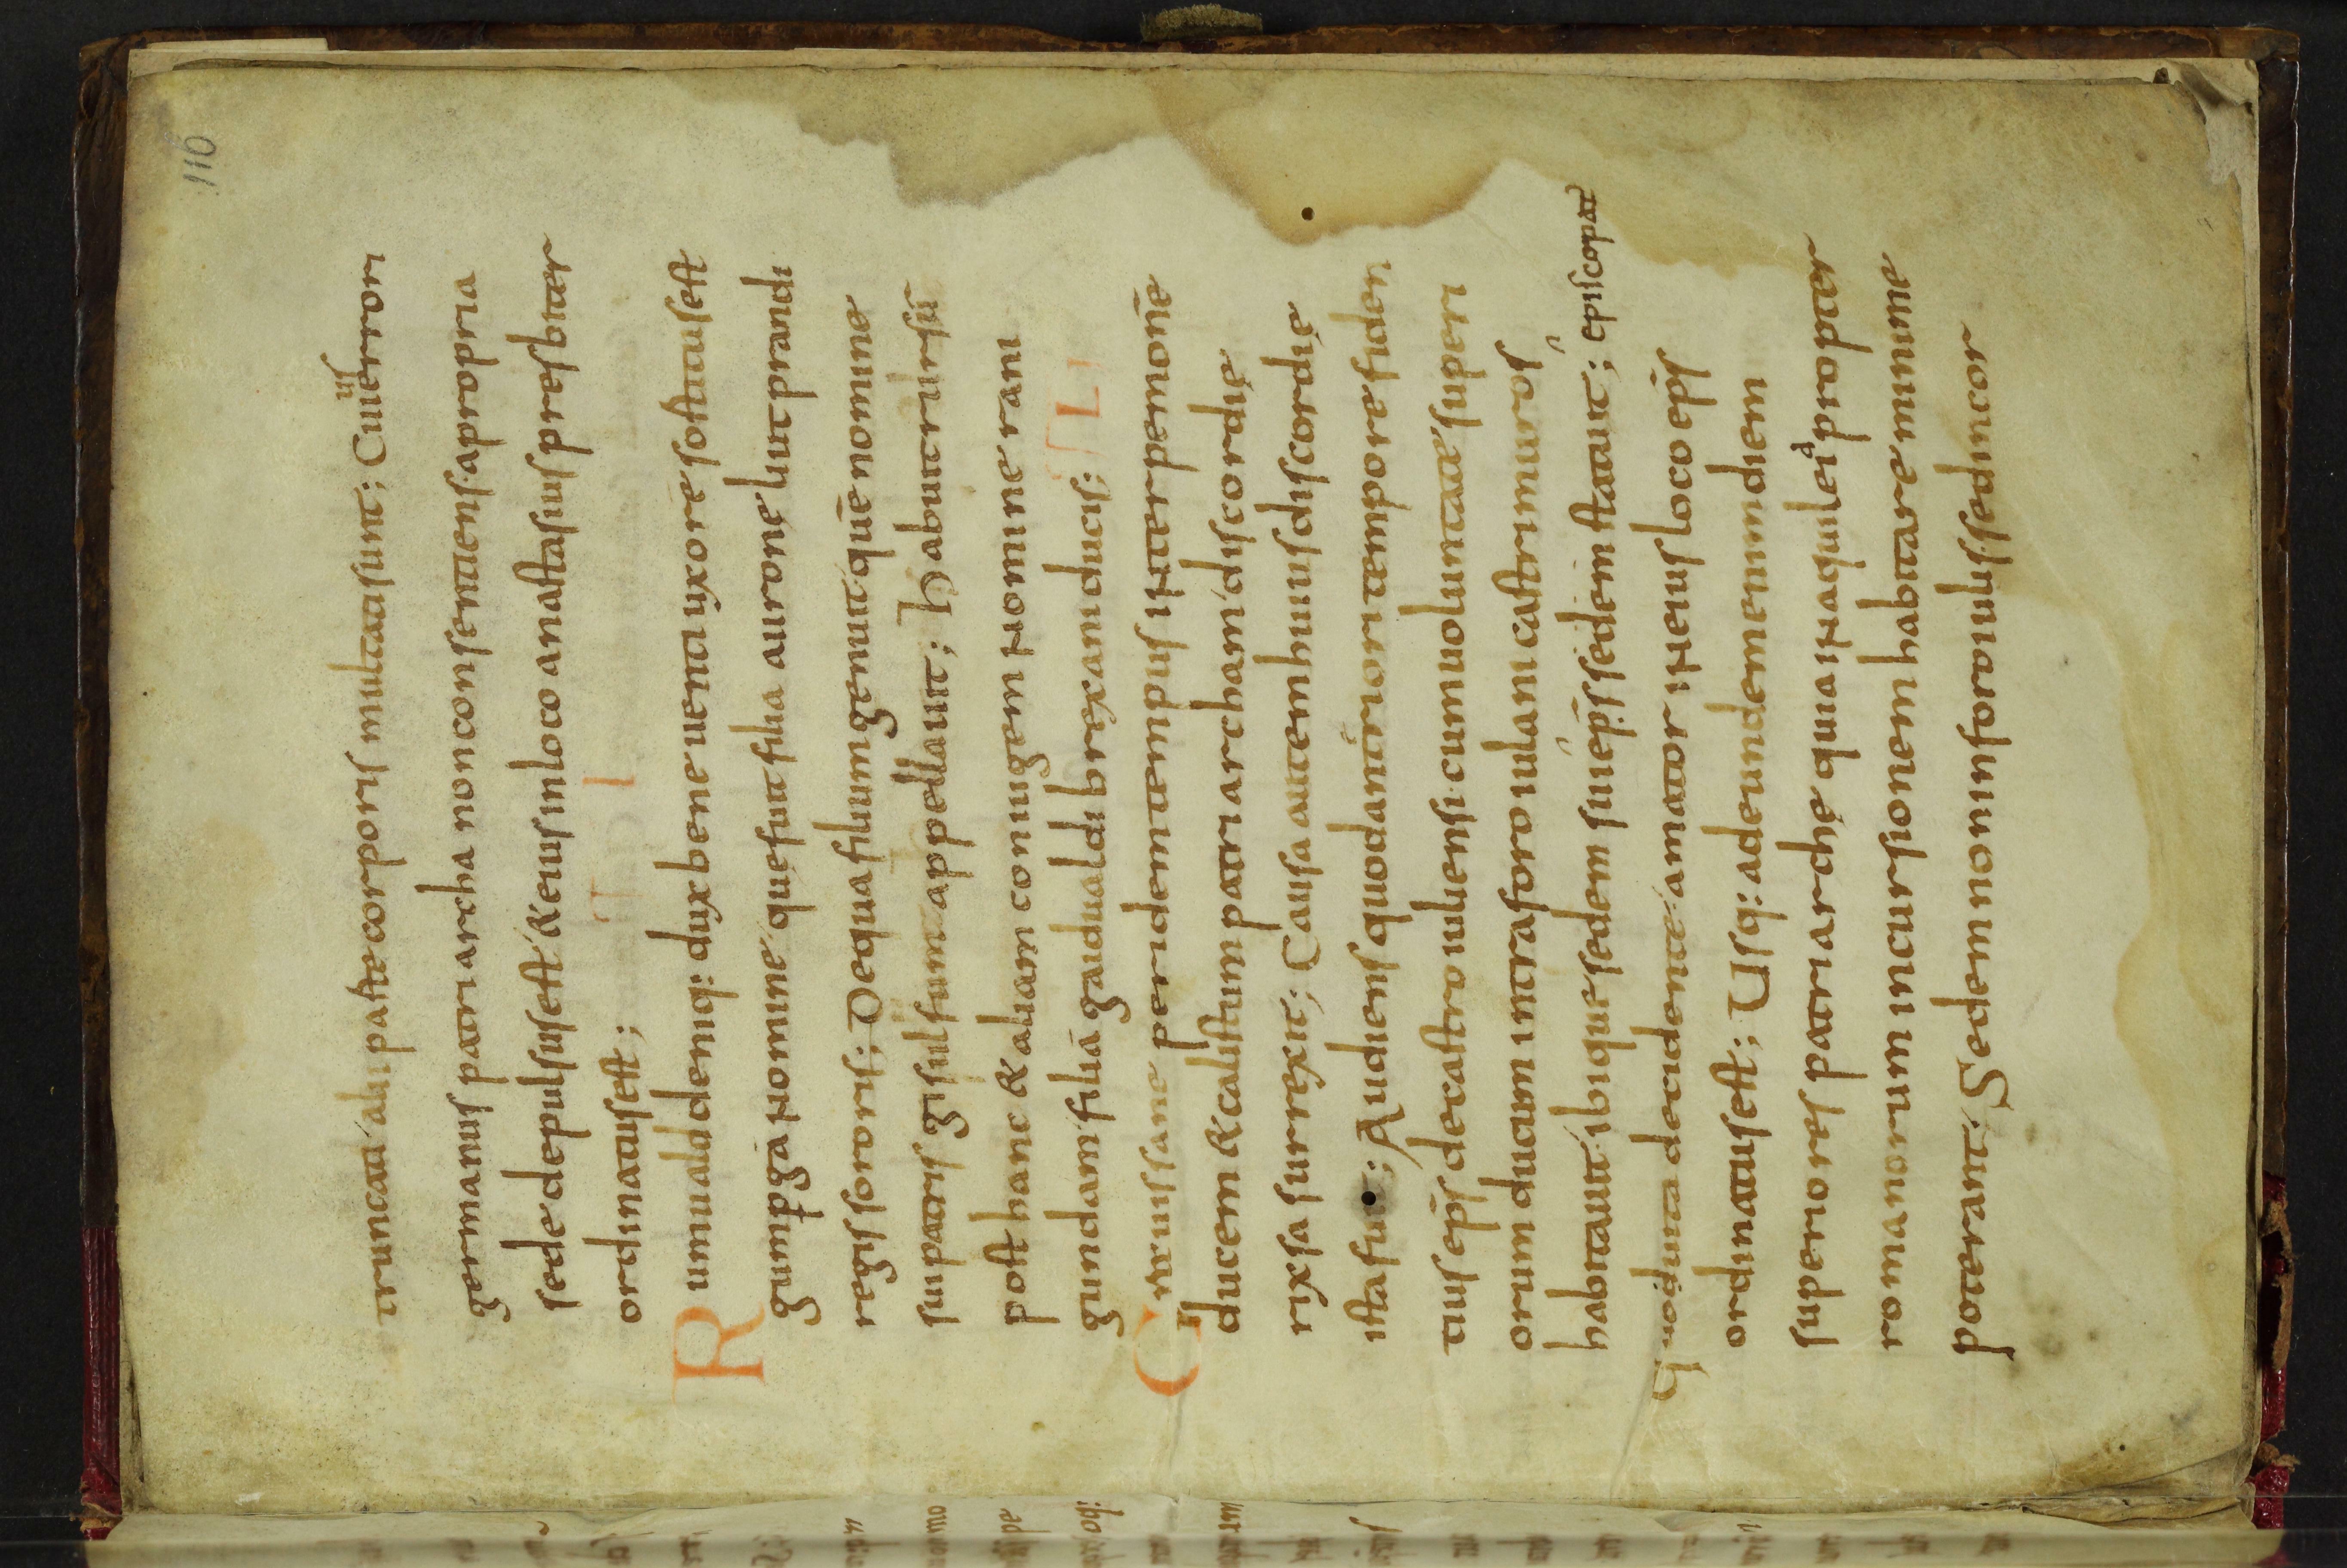 116
truncati alii paste corporis multati sunt; Cuiierron
iis
germanus patriarcha non consentiens a propria
sede depulsus est & eius in loco anastasius presbiter
ordinatus est; L I
Rumuald deniq: dux beneuenti uxore sortitus est
gumpga nomine que fuit filia auronę liutprandi
regis sororis; De qua filium genuit quē nomine
sui patris gisulfum appellauit; Habuit rursū
post hanc & aliam coniugem nomine rani
gundam filiā gaidualdi brexani ducis; LI
Grauis sane per idem tempus inter pemonē
ducem & calistum patriarcham discordię
rixsa surrexit; Causa autem huius discordię
ista fuit; Adueniens quodam priori tempore fiden
tius ep̄s de castro iuliensi cum uoluntate superi
orum ducum intra foroiulani castri muros
habitauit ibique sedem sui ep̄s sedem statuit; episcopat
quo de uita decidente amator in eius loco ep̄s
ordinatus est; Usq: ad eundem enim diem
superiores patriarchę quia in aquileia propter
romanorum incursionem habitare minime
poterant; Sedem non in foroiulis sed in cor